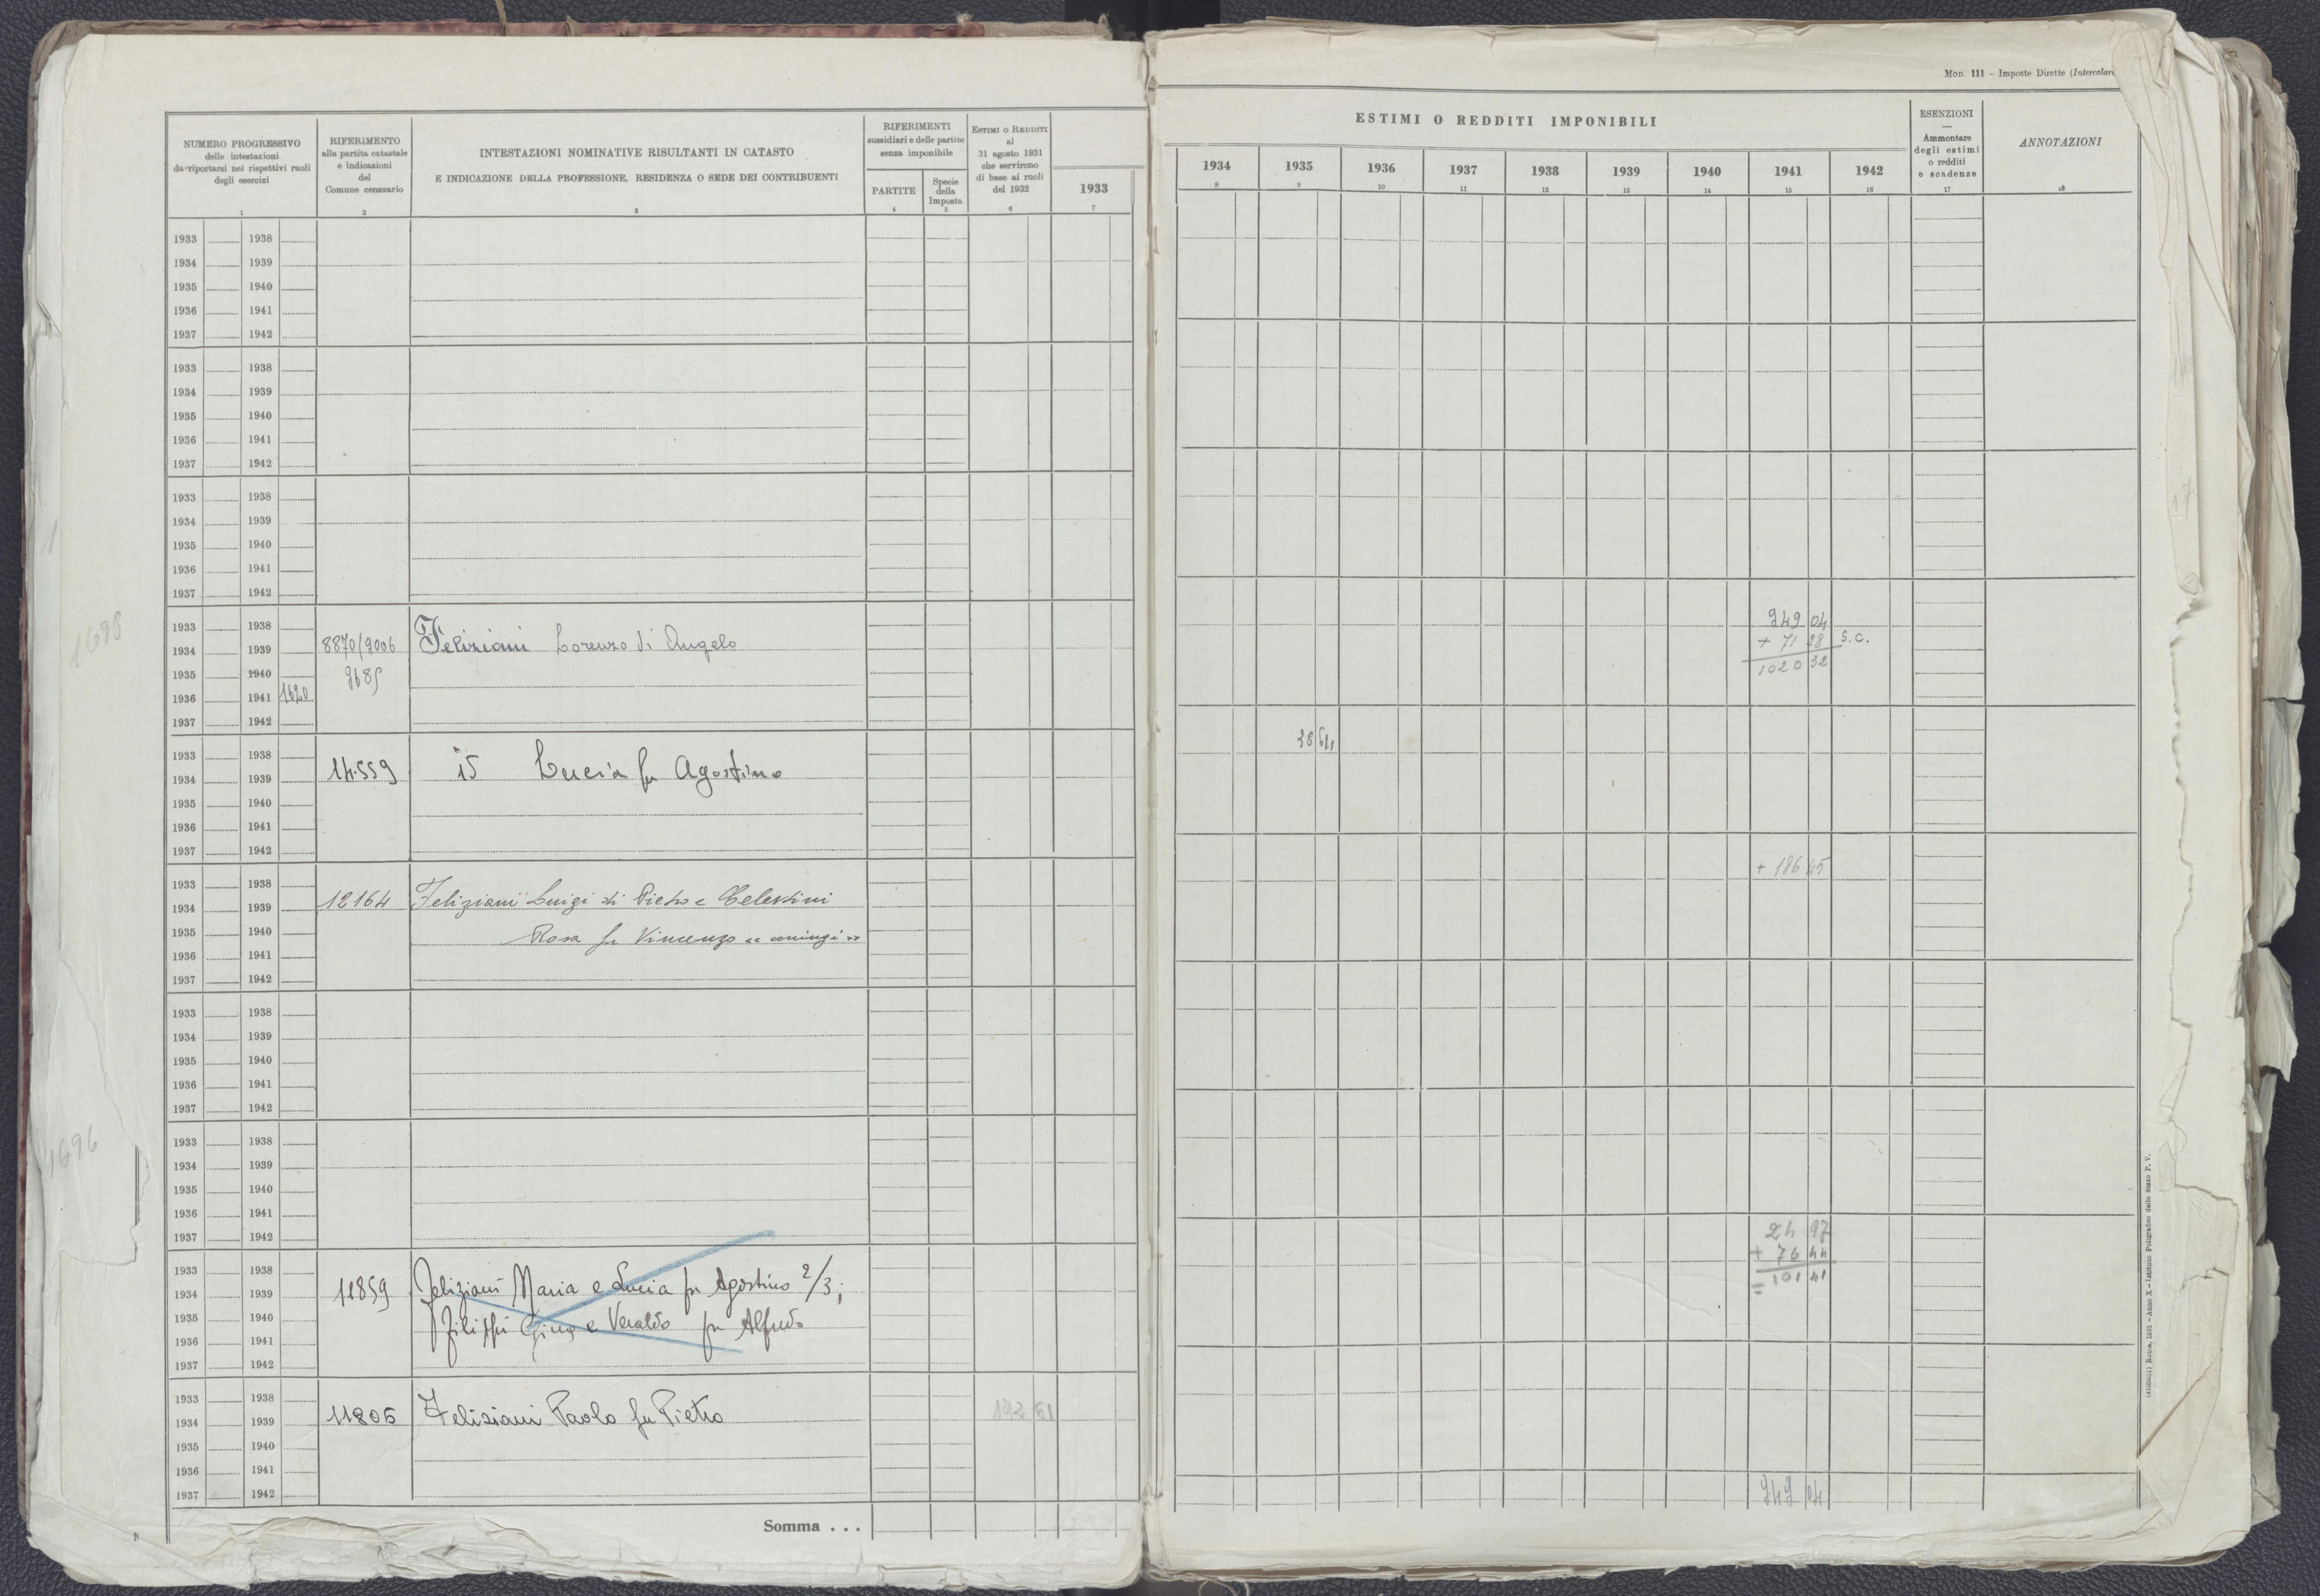 MOD. 111 – Imposte Dirette (Intercalare
NUMERO PROGRESSIVO
delle intestazioni
da riportarsi nei rispettivi ruoli
degli esercizi
1
RIFERIMENTO
alla partita catastale
e indicazioni
del
Comune censuario
2
INTESTAZIONI NOMINATIVE RISULTANTI IN CATASTO
E INDICAZIONE DELLA PROFESSIONE, RESIDENZA O SEDE DEI CONTRIBUENTI
3
RIFERIMENTI
sussidiari e delle partite
senza imponibile
PARTITE
4
Specie
della
Imposta
5
ESTIMI O REDDITI
al
31 agosto 1931
che servirono
di base ai ruoli
del 1932
6
1933
7
ESTIMI O REDDITI IMPONIBILI
1934 1935 1936 1937 1938 1939 1940 1941 1942
8 9 10 11 12 13 14 15 16
ESENZIONI
—
Ammontare
degli estimi
o redditi
e scadenze
17
ANNOTAZIONI
18
1933 1938
1934 1939
1935 1940
1936 1941
1937 1942
1933 1938
1934 1939
1935 1940
1936 1941
1937 1942
1933 1938
1934 1939
1935 1940
1936 1941
1937 1942
1698
1933 1938 949 04
1934 1939 8870/9006 Feliziani Lorenzo di Angelo + 71 28 s.c.
1935 1940 9685 1020 32
1936 1941 1620
1937 1942
1933 1938 38 64
1934 1939 14559 is Lucia fu Agostino
1935 1940
1936 1941
1937 1942
1933 1938 + 186 45
1934 1939 12164 Feliziani Luigi di Pietro e Celestini
1935 1940 Rosa fu Vincenzo "coniugi"
1936 1941
1937 1942
1933 1938
1934 1939
1935 1940
1936 1941
1937 1942
1696
1933 1938
1934 1939
1935 1940
1936 1941
1937 1942
24 97
+ 76 44
= 101 41
1933 1938
1934 1939 11859 Feliziani Maria e Lucia fu Agostino 2/3;
1935 1940 Filippi Gino e Veraldo fu Alfredo
1936 1941
1937 1942
1933 1938
1934 1939 11806 Feliziani Paolo fu Pietro 192 61
1935 1940
1936 1941
1937 1942 949 04
Somma . . .
(4100651) Roma, 1931 – Anno X – Istituto Poligrafico dello Stato P. V.